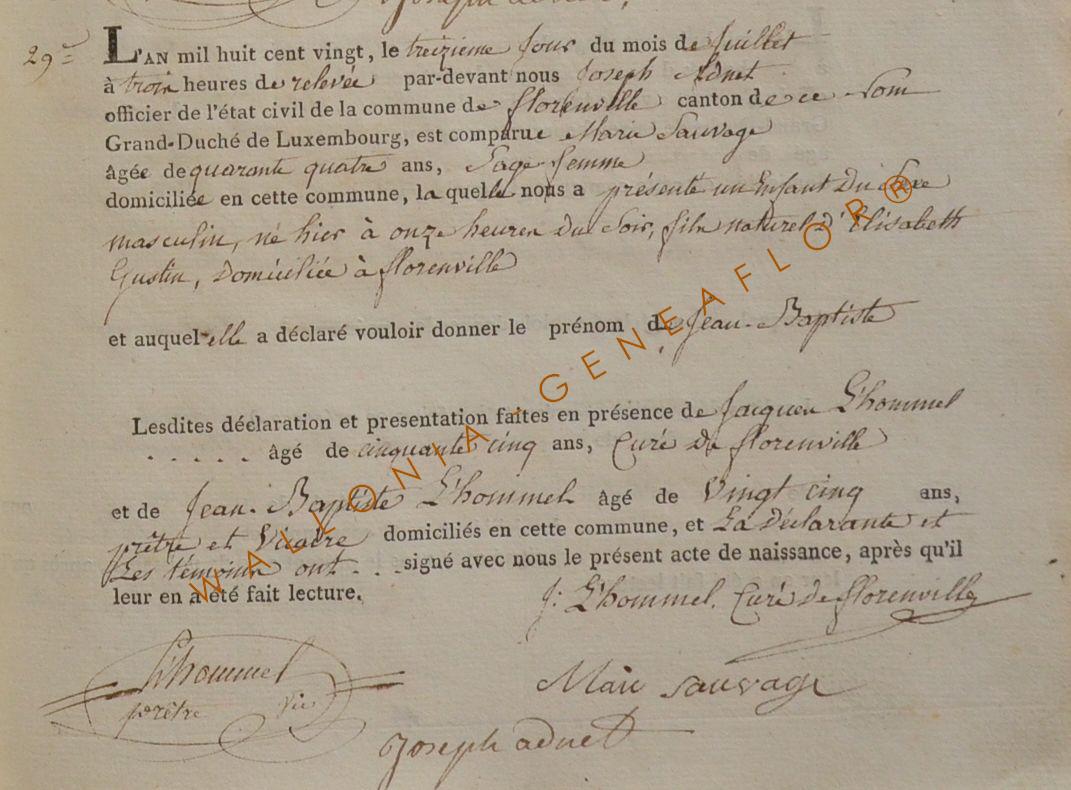 29e
L'AN mil huit cent vingt, le treizieme jour du mois de juillet
à trois heures de relevée par-devant nous Joseph Adnet
officier de l'état civil de la commune de florenville canton de ce Nom
Grand-Duché de Luxembourg, est comparue Marie Sauvage
âgée de quarante quatre ans, Sage femme
domiciliée en cette commune, laquelle nous a présenté un Enfant Du Sexe
masculin, né hier à onze heures Du Soir, fils naturel d'Elisabeth
Gustin, Domiciliée à florenville
et auquel elle a déclaré vouloir donner le prénom de Jean-Baptiste
Lesdites déclaration et presentation faites en présence de Jacques L'hommel
. . . . . âgé de cinquante cinq ans, Curé de florenville
et de Jean-Baptiste L'hommel âgé de Vingt cinq ans,
prêtre et Vicaire domiciliés en cette commune, et La Déclarante et
Les témoins ont . . . signé avec nous le présent acte de naissance, après qu'il
leur en a été fait lecture.
J: L'hommel. Curé de florenville
L'hommel
prêtre vic
Marie sauvage
Joseph adnet
WALLONIA-GENEAFLOR®